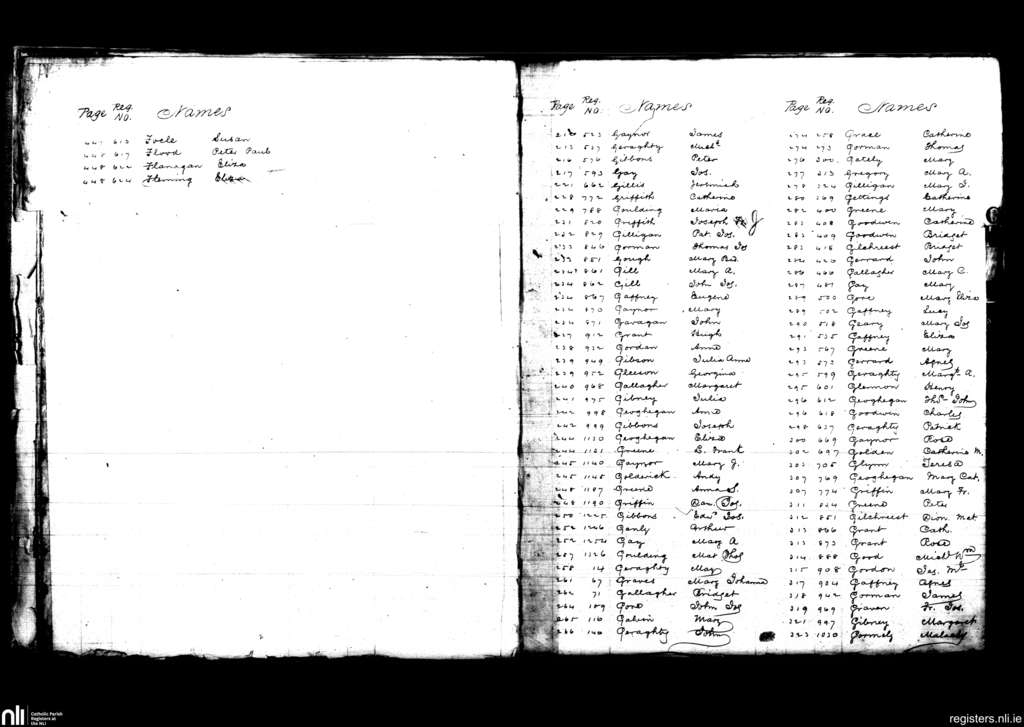 Page Reg. No. Names
447 613 Foele Susan
445 617 Flood Peter Paul
448 622 Flanagan Eliza
448 624 Fleming Eliza
Page Reg. No. Names
523 Gaynor James
213 537 Geraghty Michl.
216 576 Gibbons Peter
217 593 Gay Jos.
221 662 Gillis Jeremiah
228 772 Griffith Catherine
229 788 Goulding Maria
231 820 Griffith Joseph J
232 829 Gilligan Pat. Jos.
233 846 Gorman Thomas Jos
233 851 Gough Mary Bd.
234 861 Gill Mary A.
234 862 Gill John Jos.
234 867 Gaffney Eugene
234 870 Gaynor Mary
234 871 Gavagan John
237 912 Grant Hugh
238 932 Gordan Anne
239 949 Gibson Julia Anne
239 952 Gleeson Georgina
240 968 Gallagher Margaret
241 975 Gibney Julia
242 998 Geoghegan Anne
242 999 Gibbons Joseph
244 1130 Geoghegan Eliza
244 1131 Greene L. Frank
245 1140 Gaynor Mary J.
245 1145 Golderick Andy
248 1187 Greene Anne S.
248 1190 Griffin Dan. Jos.
250 1225 Gibbons Edwd. Jos.
252 1246 Ganly Arthur
252 1254 Gay Mary A
257 1326 Goulding Mat Thos
258 14 Geraghty May
261 67 Graves Mary Johanna
262 71 Gallagher Bridget
264 109 Gore John Jos
265 116 Galvin Mary
266 140 Geraghty John
Page Reg. No. Names
274 258 Grace Catherine
274 273 Gorman Thomas
276 300 Gately Mary
277 313 Gregory Mary A.
278 324 Gilligan Mary J.
280 369 Gettings Catherine
282 400 Greene Mary
283 408 Goodwin Catherine
283 409 Goodwin Bridget
283 418 Gilchreest Bridget
284 420 Gerrard John
286 460 Gallagher Mary C.
287 481 Gay Mary
289 500 Gore Mary Eliza
289 502 Gaffney Lucy
290 518 Geary Mary Jos
291 535 Gaffney Eliza
293 567 Greene Mary
293 573 Gerrard Agnes
295 599 Geraghty Margt. A.
295 601 Glennon Henry
296 612 Geoghegan Ths. John
296 618 Goodwin Charles
298 637 Geraghty Patrick
300 669 Gaynor Rose
302 697 Golden Catherine M.
302 705 Glynn Teresa
307 769 Geoghegan Mary Cat.
307 774 Griffin Mary Fr.
311 834 Greene Peter
312 851 Gilchreest Dion. Mat
313 866 Grant Cath.
313 873 Grant Rose
314 888 Good Michl. Wm
315 908 Gordon Jas. Mt.
317 934 Gaffney Agnes
318 942 Gorman James
319 969 Graven Fr. Jos.
321 997 Gibney Margaret
323 1030 Gormely Malachy
nli Catholic Parish Registers at the NLI
registers.nli.ie